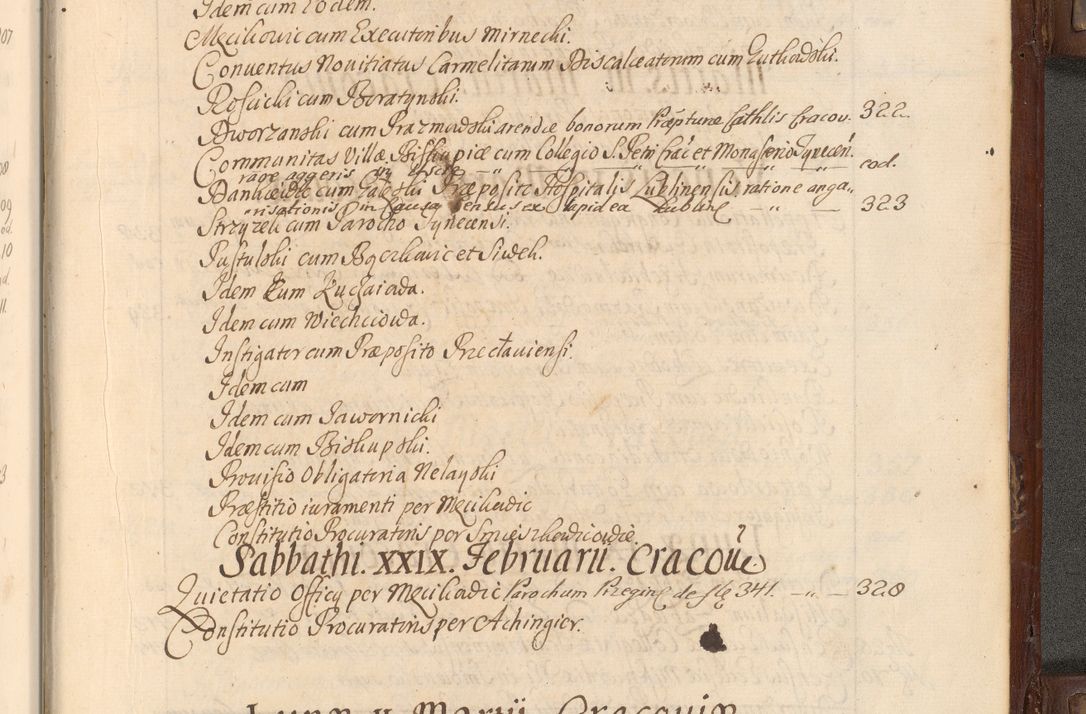 Idem cum Eodem.
Meciliowic cum Executoribus Mirnecki.
Conventus Novitiatus Carmelitarum Discalceatorum cum
Roscicki cum Boratynski.
Dworzanski cum Prazmowski arendæ bonorum Præpturæ Cathlis Cracou. 322
Communitas Villæ Biskupicæ cum Collegio S. Petri Crac et Monasterio Tynecen.
rãoe aggeris eod.
cum Præposito Hospitalis Lublinensis ratione anga-
risationis in causa census ex lapidea Lubline - " - 323
Strzyzelicum Parocho Tynecensi.
Pustulski cum et Siudek.
Idem cum
Idem cum Wiechciowa.
Instigator cum Præposito Przecłaviensi.
Idem cum
Idem cum Jawornicki
Idem cum Biskupski.
Provisio Obligatoria Nelayski
Præstitio iuramenti per
Constitutio Procuratoris per
Sabbathi. XXIX. Februarii. Cracouæ
Quietatio Officij per Parochum de 341. - " - 328
Constitutio Procuratoris per Achingier.
Lunæ II Martij Cracoviæ